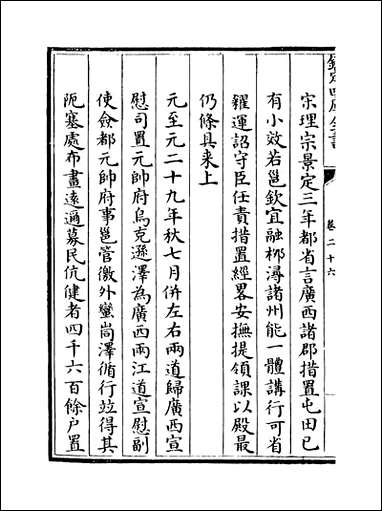 欽定四庫全書
卷二十六
宋理宗景定三年都省言廣西諸郡措置屯田已
有小效若邕欽宜融柳潯諸州能一體講行可省
糴運詔守臣任責措置經畧安撫提領課以殿最
仍條具来上
元至元二十九年秋七月併左右兩道歸廣西宣
慰司置元帥府烏克遜澤為廣西兩江道宣慰副
使僉都元帥府事邕管徼外蠻峝澤循行竝得其
阨塞處布畫遠邇募民伉健者四千六百餘户置